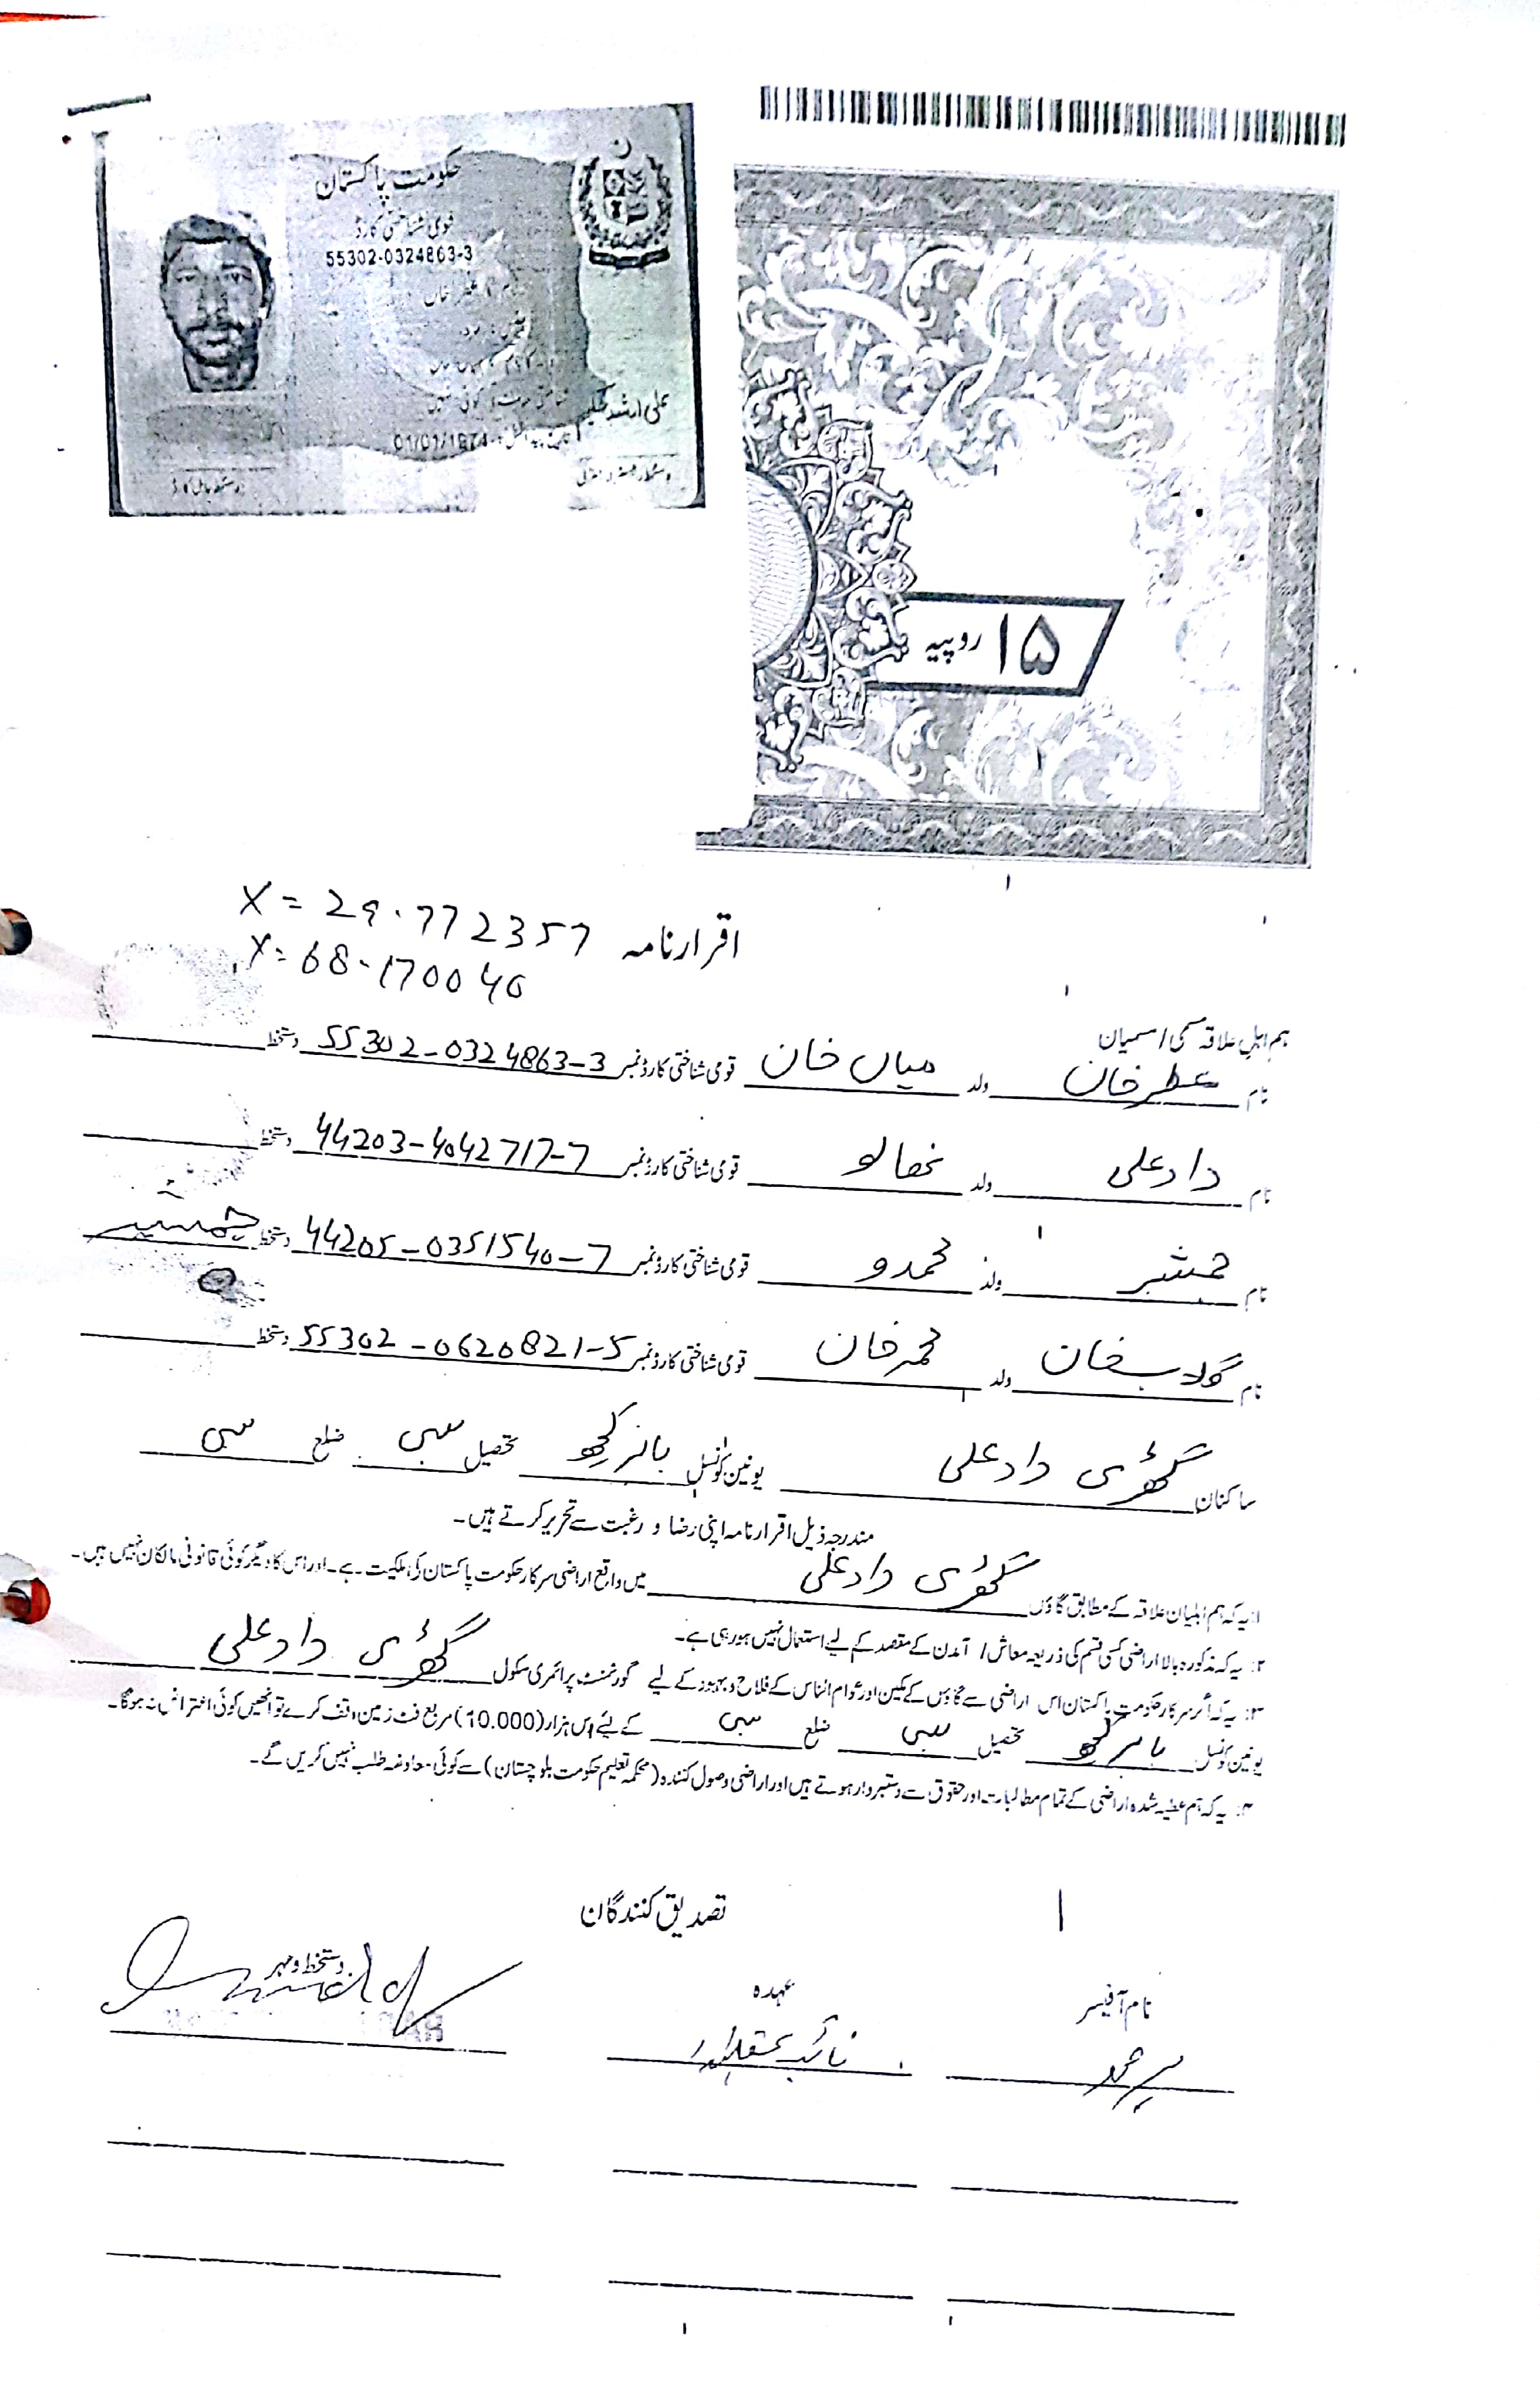 حکومت پاکستان
قومی شناختی کارڈ
55302-0324863-3
خان
01/01/1974
۱۵ روپیہ
X = 29.772357
اقرارنامہ
Y = 68.170040
ہم اہل علاقہ مسمی / اسمیان
نام عطر خان ولد میاں خان قومی شناختی کارڈ نمبر 55302-0324863-3 دستخط
نام داد علی ولد قومی شناختی کارڈ نمبر 44203-4042717-7 دستخط
نام ولد محمدو قومی شناختی کارڈ نمبر 44205-0351540-7 دستخط
نام گلاب خان ولد محمد خان قومی شناختی کارڈ نمبر 55302-0620821-5 دستخط
ساکنان داد علی یونین کونسل تحصیل سبی ضلع سبی
مندرجہ ذیل اقرارنامہ اپنی رضا و رغبت سے تحریر کرتے ہیں۔
۱: یہ کہ ہم اہلیان علاقہ کے مطابق گاؤں داد علی میں واقع اراضی سرکار حکومت پاکستان کی ملکیت ہے۔ اور اس کا دیگر کوئی قانونی مالکان نہیں ہیں۔
۲: یہ کہ مذکورہ بالا اراضی کسی قسم کی ذریعہ معاش / آمدن کے مقصد کے لیے استعمال نہیں ہو رہی ہے۔
۳: یہ کہ اگر سرکار حکومت پاکستان اس اراضی سے گاؤں کے مکین اور عوام الناس کے فلاح و بہبود کے لیے گورنمنٹ پرائمری سکول داد علی
یونین کونسل تحصیل سبی ضلع سبی کے لیئے دس ہزار (10.000) مربع فٹ زمین وقف کرے تو انھیں کوئی اعتراض نہ ہوگا۔
۴: یہ کہ ہم عطیہ شدہ اراضی کے تمام مطالبات اور حقوق سے دستبردار ہوتے ہیں اور اراضی وصول کنندہ (محکمہ تعلیم حکومت بلوچستان) سے کوئی معاوضہ طلب نہیں کریں گے۔
تصدیق کنندگان
نام آفیسر عہدہ دستخط و مہر
نائب تحصیلدار